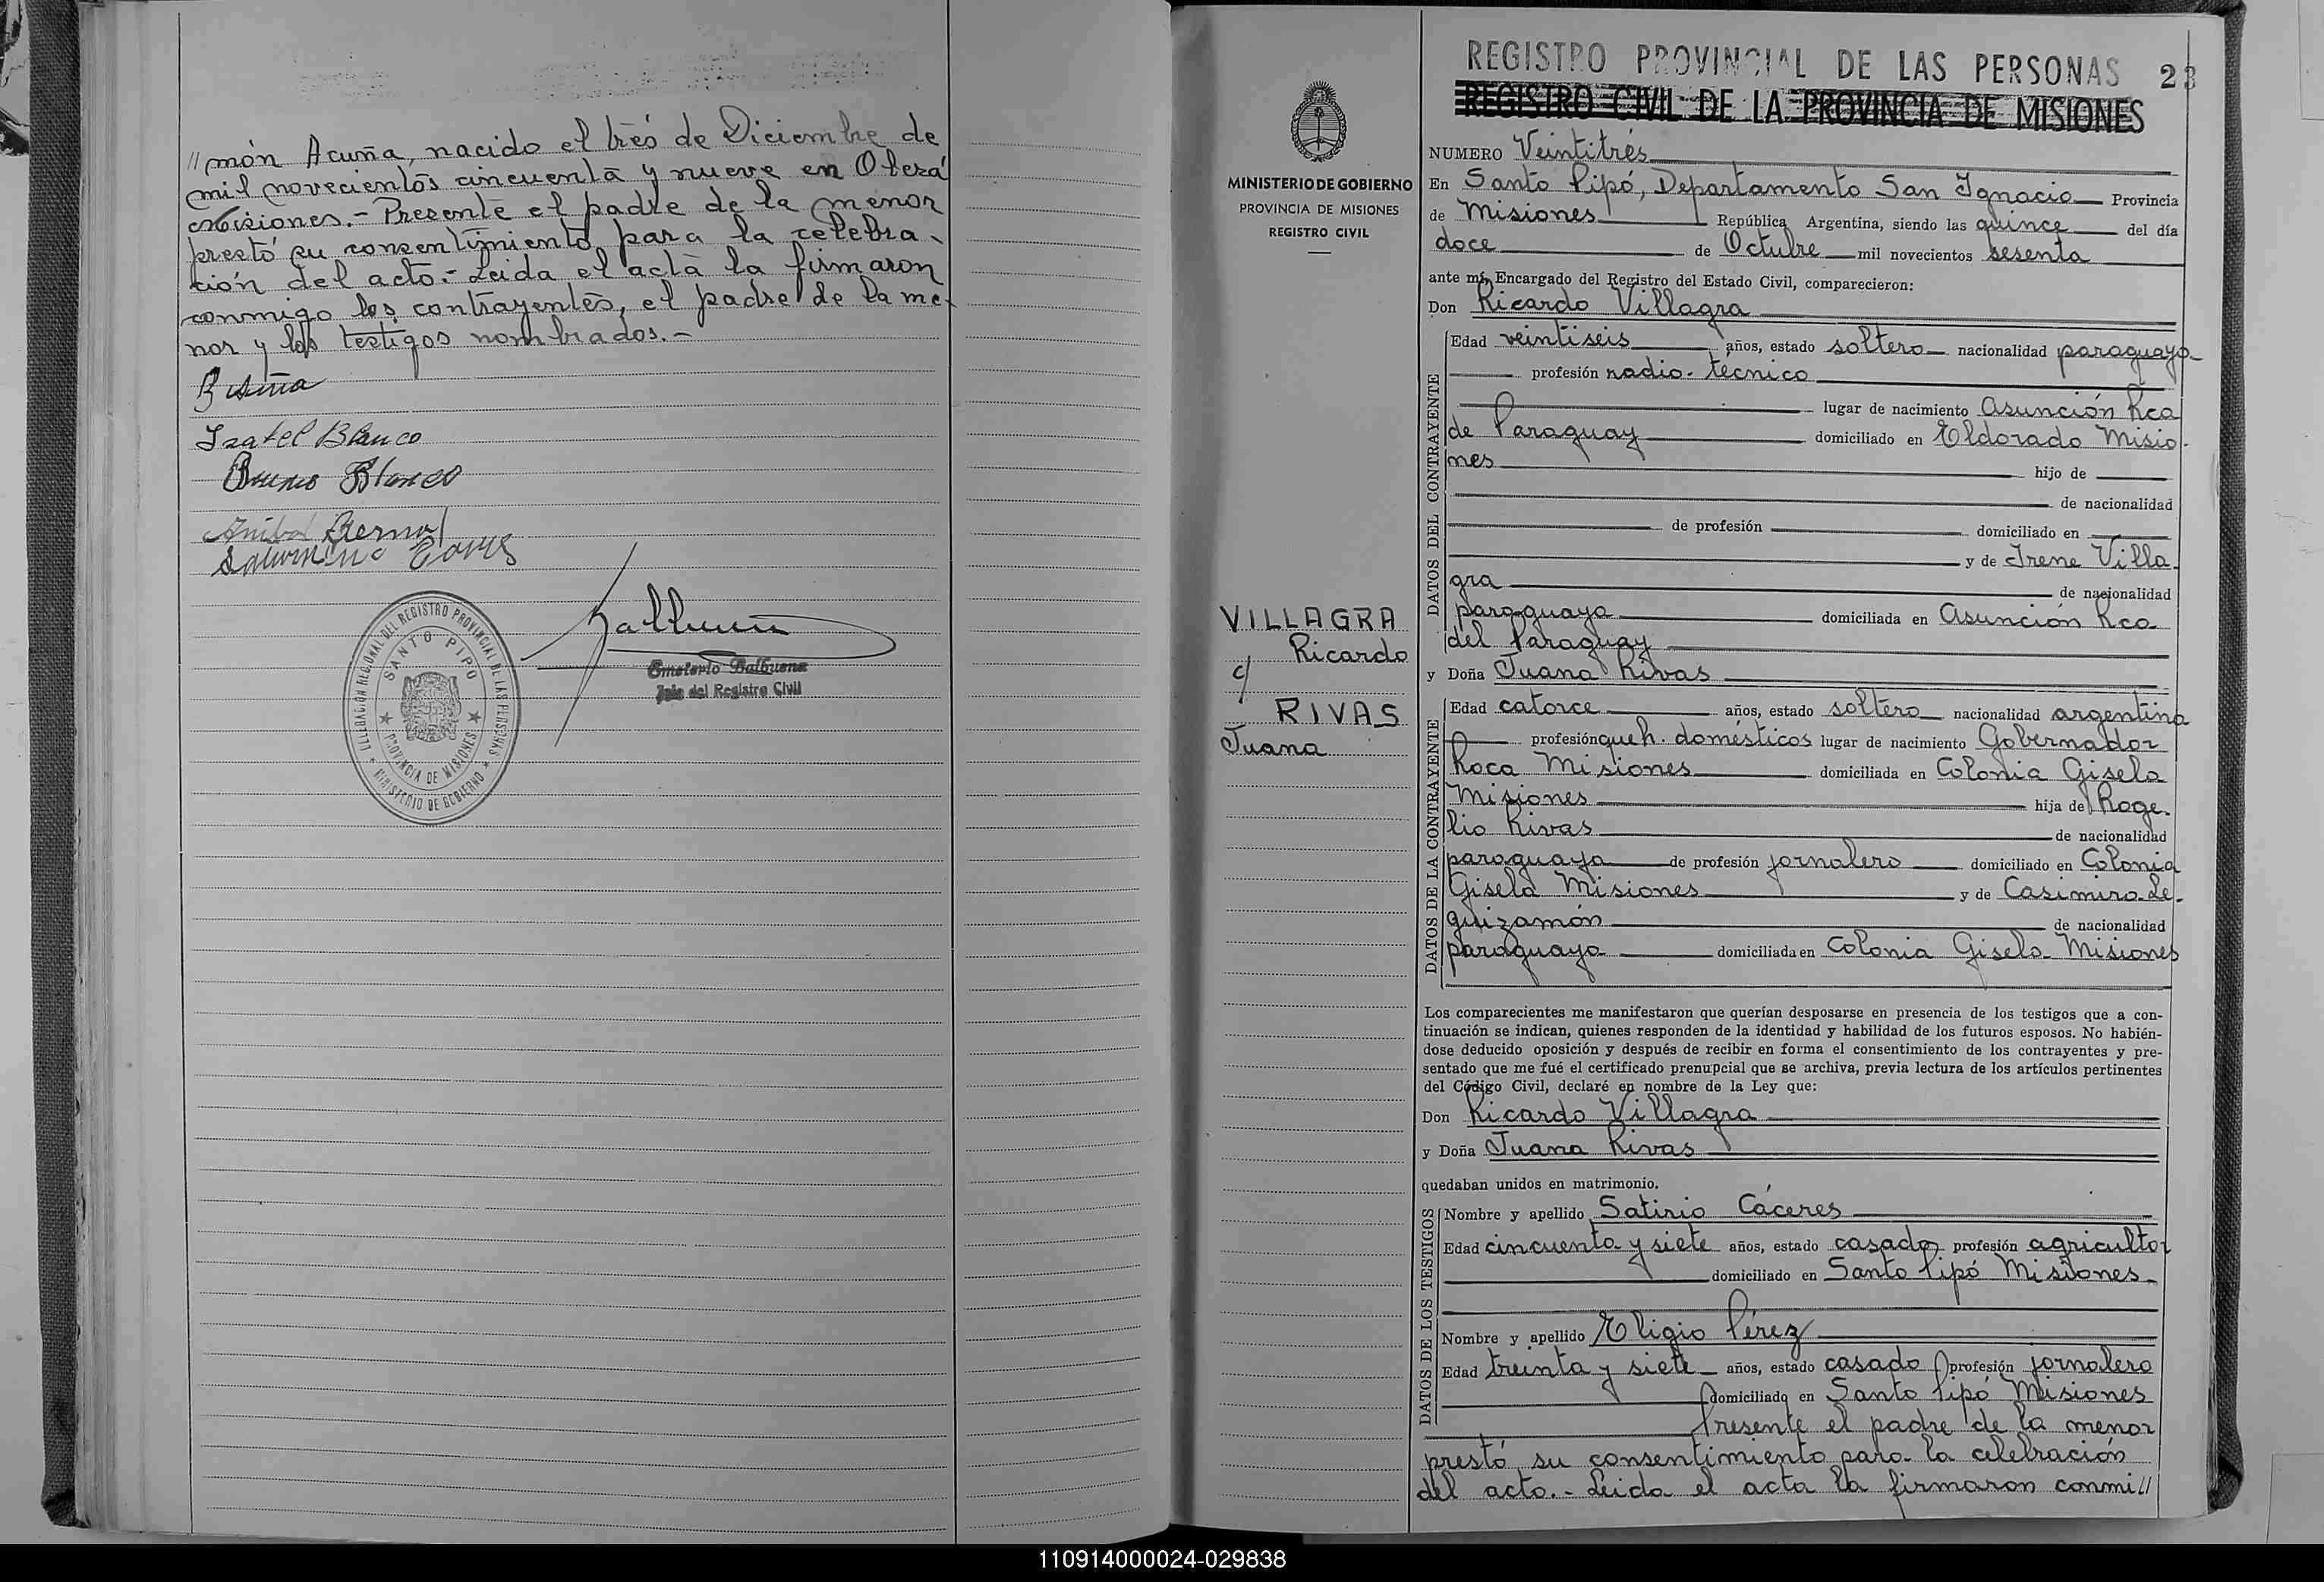 //món Acuña, nacido el tres de Diciembre de
mil novecientos cincuenta y nueve en Oberá
Misiones.- Presente el padre de la menor
prestó su consentimiento para la celebra-
ción del acto.- Leida el acta la firmaron
conmigo los contrayentes, el padre de la me-
nor y los testigos nombrados.-
Isabel Blanco
Bruno Blanco
Anibal Bernal
Saturnino
Emeterio Balbuena
Jefe del Registro Civil
DELEGACIÓN REGIONAL DEL REGISTRO PROVINCIAL DE LAS PERSONAS
SANTO PIPÓ
PROVINCIA DE MISIONES
MINISTERIO DE GOBIERNO
MINISTERIO DE GOBIERNO
PROVINCIA DE MISIONES
REGISTRO CIVIL
VILLAGRA
Ricardo
c/
RIVAS
Juana
REGISTRO PROVINCIAL DE LAS PERSONAS 23
REGISTRO CIVIL DE LA PROVINCIA DE MISIONES
NUMERO Veintitrés
En Santo Pipó, Departamento San Ignacio Provincia
de Misiones República Argentina, siendo las quince del día
doce de Octubre mil novecientos sesenta
ante mí, Encargado del Registro del Estado Civil, comparecieron:
Don Ricardo Villagra
DATOS DEL CONTRAYENTE
Edad veintiseis años, estado soltero nacionalidad paraguaya
profesión radio-técnico
lugar de nacimiento Asunción Rca
de Paraguay domiciliado en Eldorado Misio-
nes hijo de
de nacionalidad
de profesión domiciliado en
y de Irene Villa-
gra de nacionalidad
paraguaya domiciliada en Asunción Rca
del Paraguay
y Doña Juana Rivas
DATOS DE LA CONTRAYENTE
Edad catorce años, estado soltero nacionalidad argentina
profesión queh. domésticos lugar de nacimiento Gobernador
Roca Misiones domiciliada en Colonia Gisela
Misiones hija de Roge-
lio Rivas de nacionalidad
paraguaya de profesión jornalero domiciliado en Colonia
Gisela Misiones y de Casimira Le-
guizamón de nacionalidad
paraguaya domiciliada en Colonia Gisela Misiones
Los comparecientes me manifestaron que querían desposarse en presencia de los testigos que a con-
tinuación se indican, quienes responden de la identidad y habilidad de los futuros esposos. No habién-
dose deducido oposición y después de recibir en forma el consentimiento de los contrayentes y pre-
sentado que me fué el certificado prenupcial que se archiva, previa lectura de los artículos pertinentes
del Código Civil, declaré en nombre de la Ley que:
Don Ricardo Villagra
y Doña Juana Rivas
quedaban unidos en matrimonio.
DATOS DE LOS TESTIGOS
Nombre y apellido Satirio Cáceres
Edad cincuenta y siete años, estado casado profesión agricultor
domiciliado en Santo Pipó Misiones
Nombre y apellido Eligio Pérez
Edad treinta y siete años, estado casado profesión jornalero
domiciliado en Santo Pipó Misiones
Presente el padre de la menor
prestó su consentimiento para la celebración
del acto.- Leida el acta la firmaron conmi//
110914000024-029838